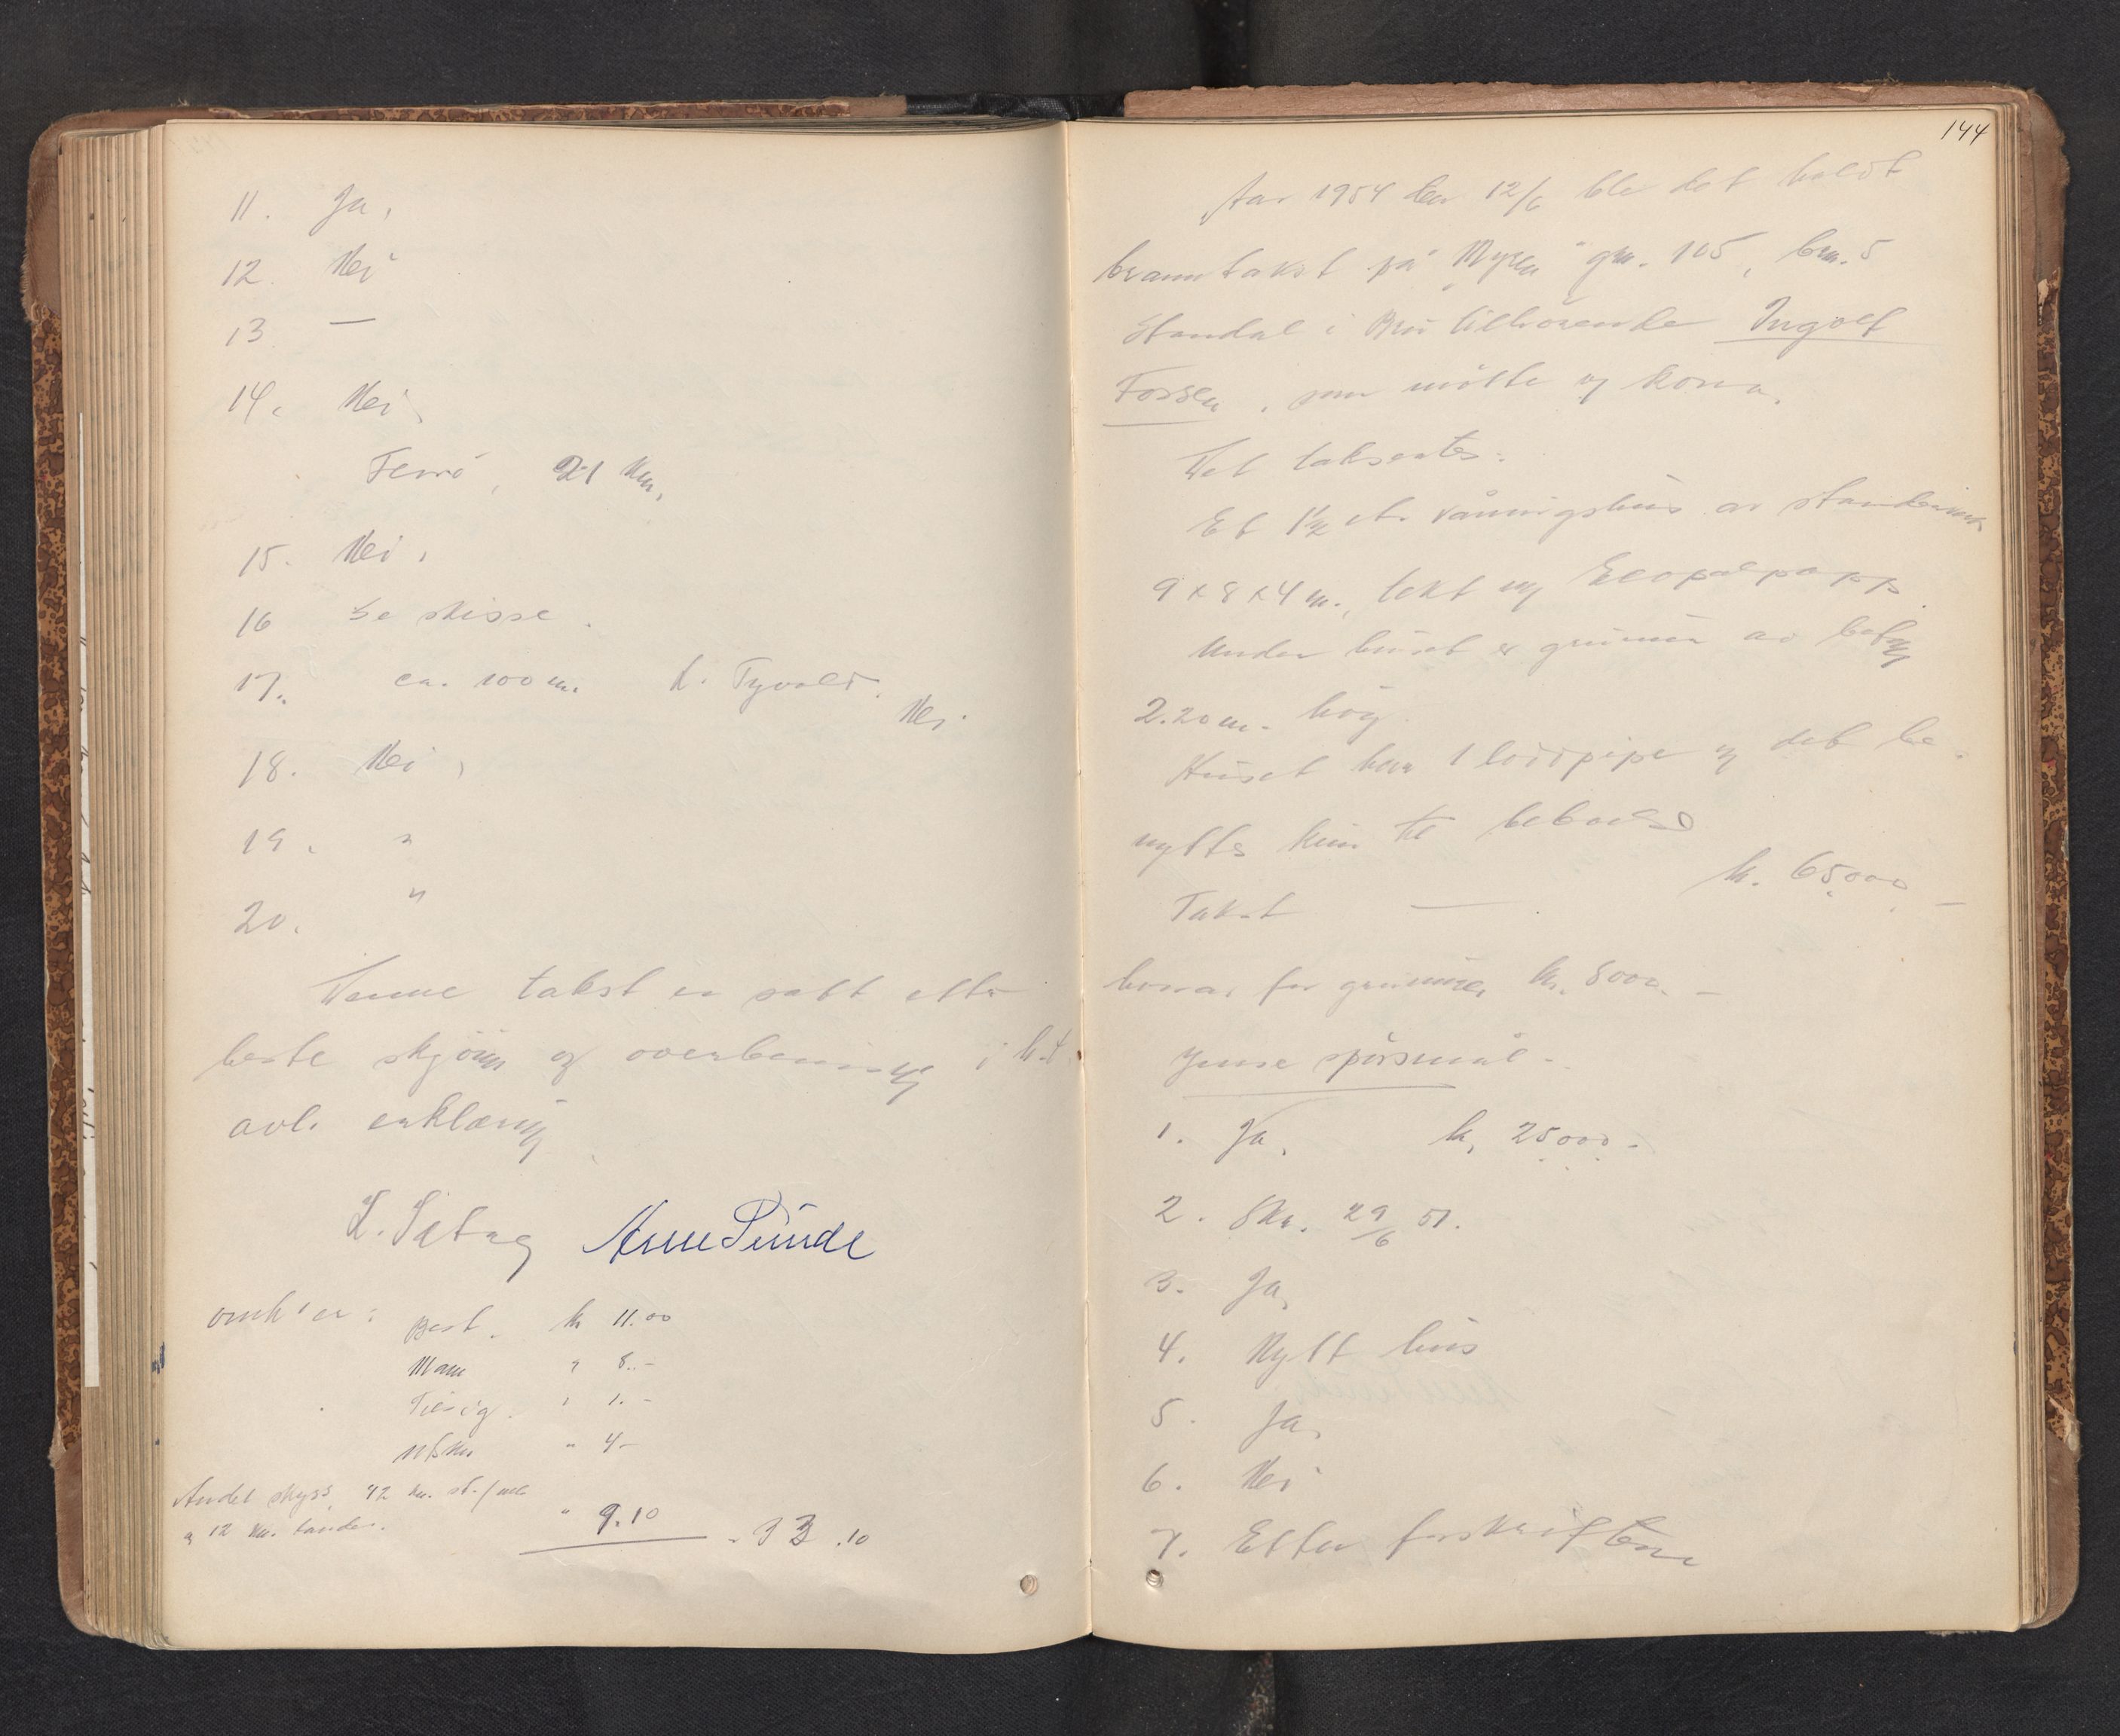 11. Ja,
12. Nei
13 —
14. Nei
Femö, 21 km,
15. Nei,
16 Se skisse.
17. ca. 100 m. Nei.
18. Nei,
19. "
20. "
Denne takst er satt etter
beste skjønn og overbevisning i h.t.
avl. erklæring
L. Sætrag Arne Sunde
omk'er:
Best. kr 11.00
Mann " 8.-
" 1.-
" 4-
Andel skyss, 42 km.
a 12 km. " 9.10 - 33.10
144
Aar 1954 den 12/6 ble det holdt
branntakst på "Myren" gnr. 105, bnr. 5
Standal i Bru tilhørende Ingolf
Fossen, som møtte og kona.
Det takseres:
Et 1½ et. våningshus av
9 x 8 x 4 m., tekt
Under huset er grunnmur av betong
2.20 m. høg.
Huset har 1 loddpipe og det be-
nyttes kun til beboelse
Takst — kr. 65.000.—
herav for grunnmur kr. 8000.—
Ymse spörsmål.
1. Ja, kr. 25.000.-
2. Skr. 29/6 51.
3. Ja,
4. Nytt hus
5. Ja,
6. Nei
7. Etter forskriftene